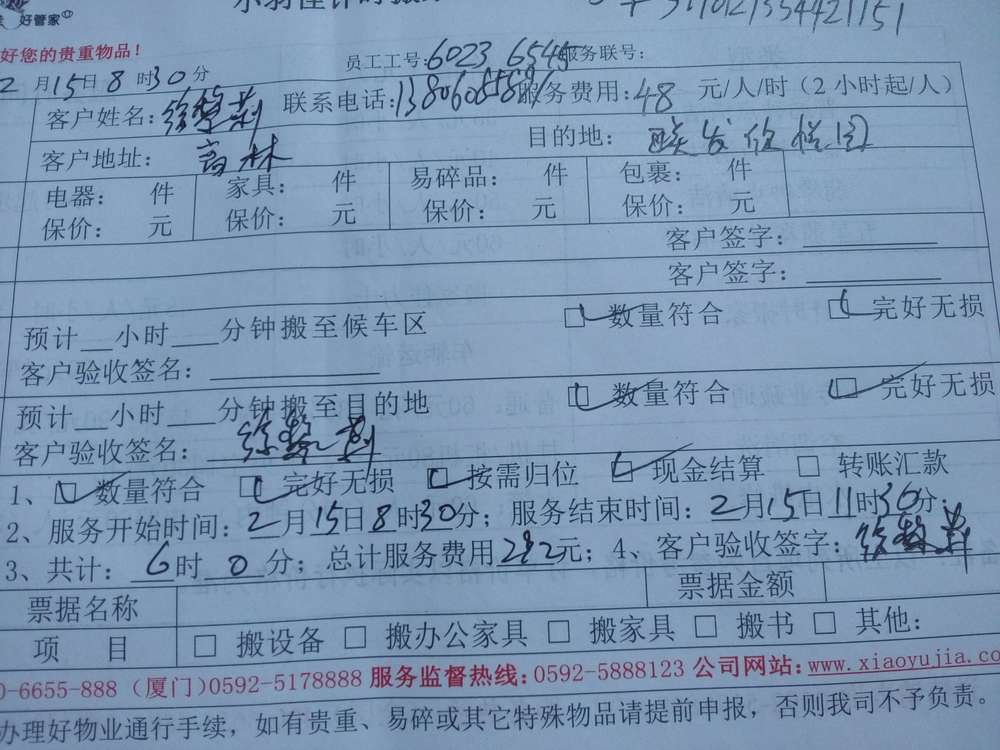 好管家
好您的贵重物品!
2月15日8时30分 员工工号:6023 6545 服务联号:
客户姓名: 联系电话: 服务费用:48 元/人/时(2小时起/人)
客户地址:高林 目的地:
电器: 件 家具: 件 易碎品: 件 包裹: 件
保价: 元 保价: 元 保价: 元 保价: 元
客户签字:
客户签字:
预计__小时___分钟搬至候车区 数量符合 完好无损
客户验收签名:
预计__小时___分钟搬至目的地 数量符合 完好无损
客户验收签名:
1、 数量符合 完好无损 按需归位 现金结算 转账汇款
2、服务开始时间:2月15日8时30分;服务结束时间:2月15日11时30分;
3、共计:6时0分;总计服务费用282元;4、客户验收签字:
票据名称 票据金额
项 目 搬设备 搬办公家具 搬家具 搬书 其他:
0-6655-888 (厦门)0592-5178888 服务监督热线:0592-5888123 公司网站:www.xiaoyujia.co
办理好物业通行手续，如有贵重、易碎或其它特殊物品请提前申报，否则我司不予负责。